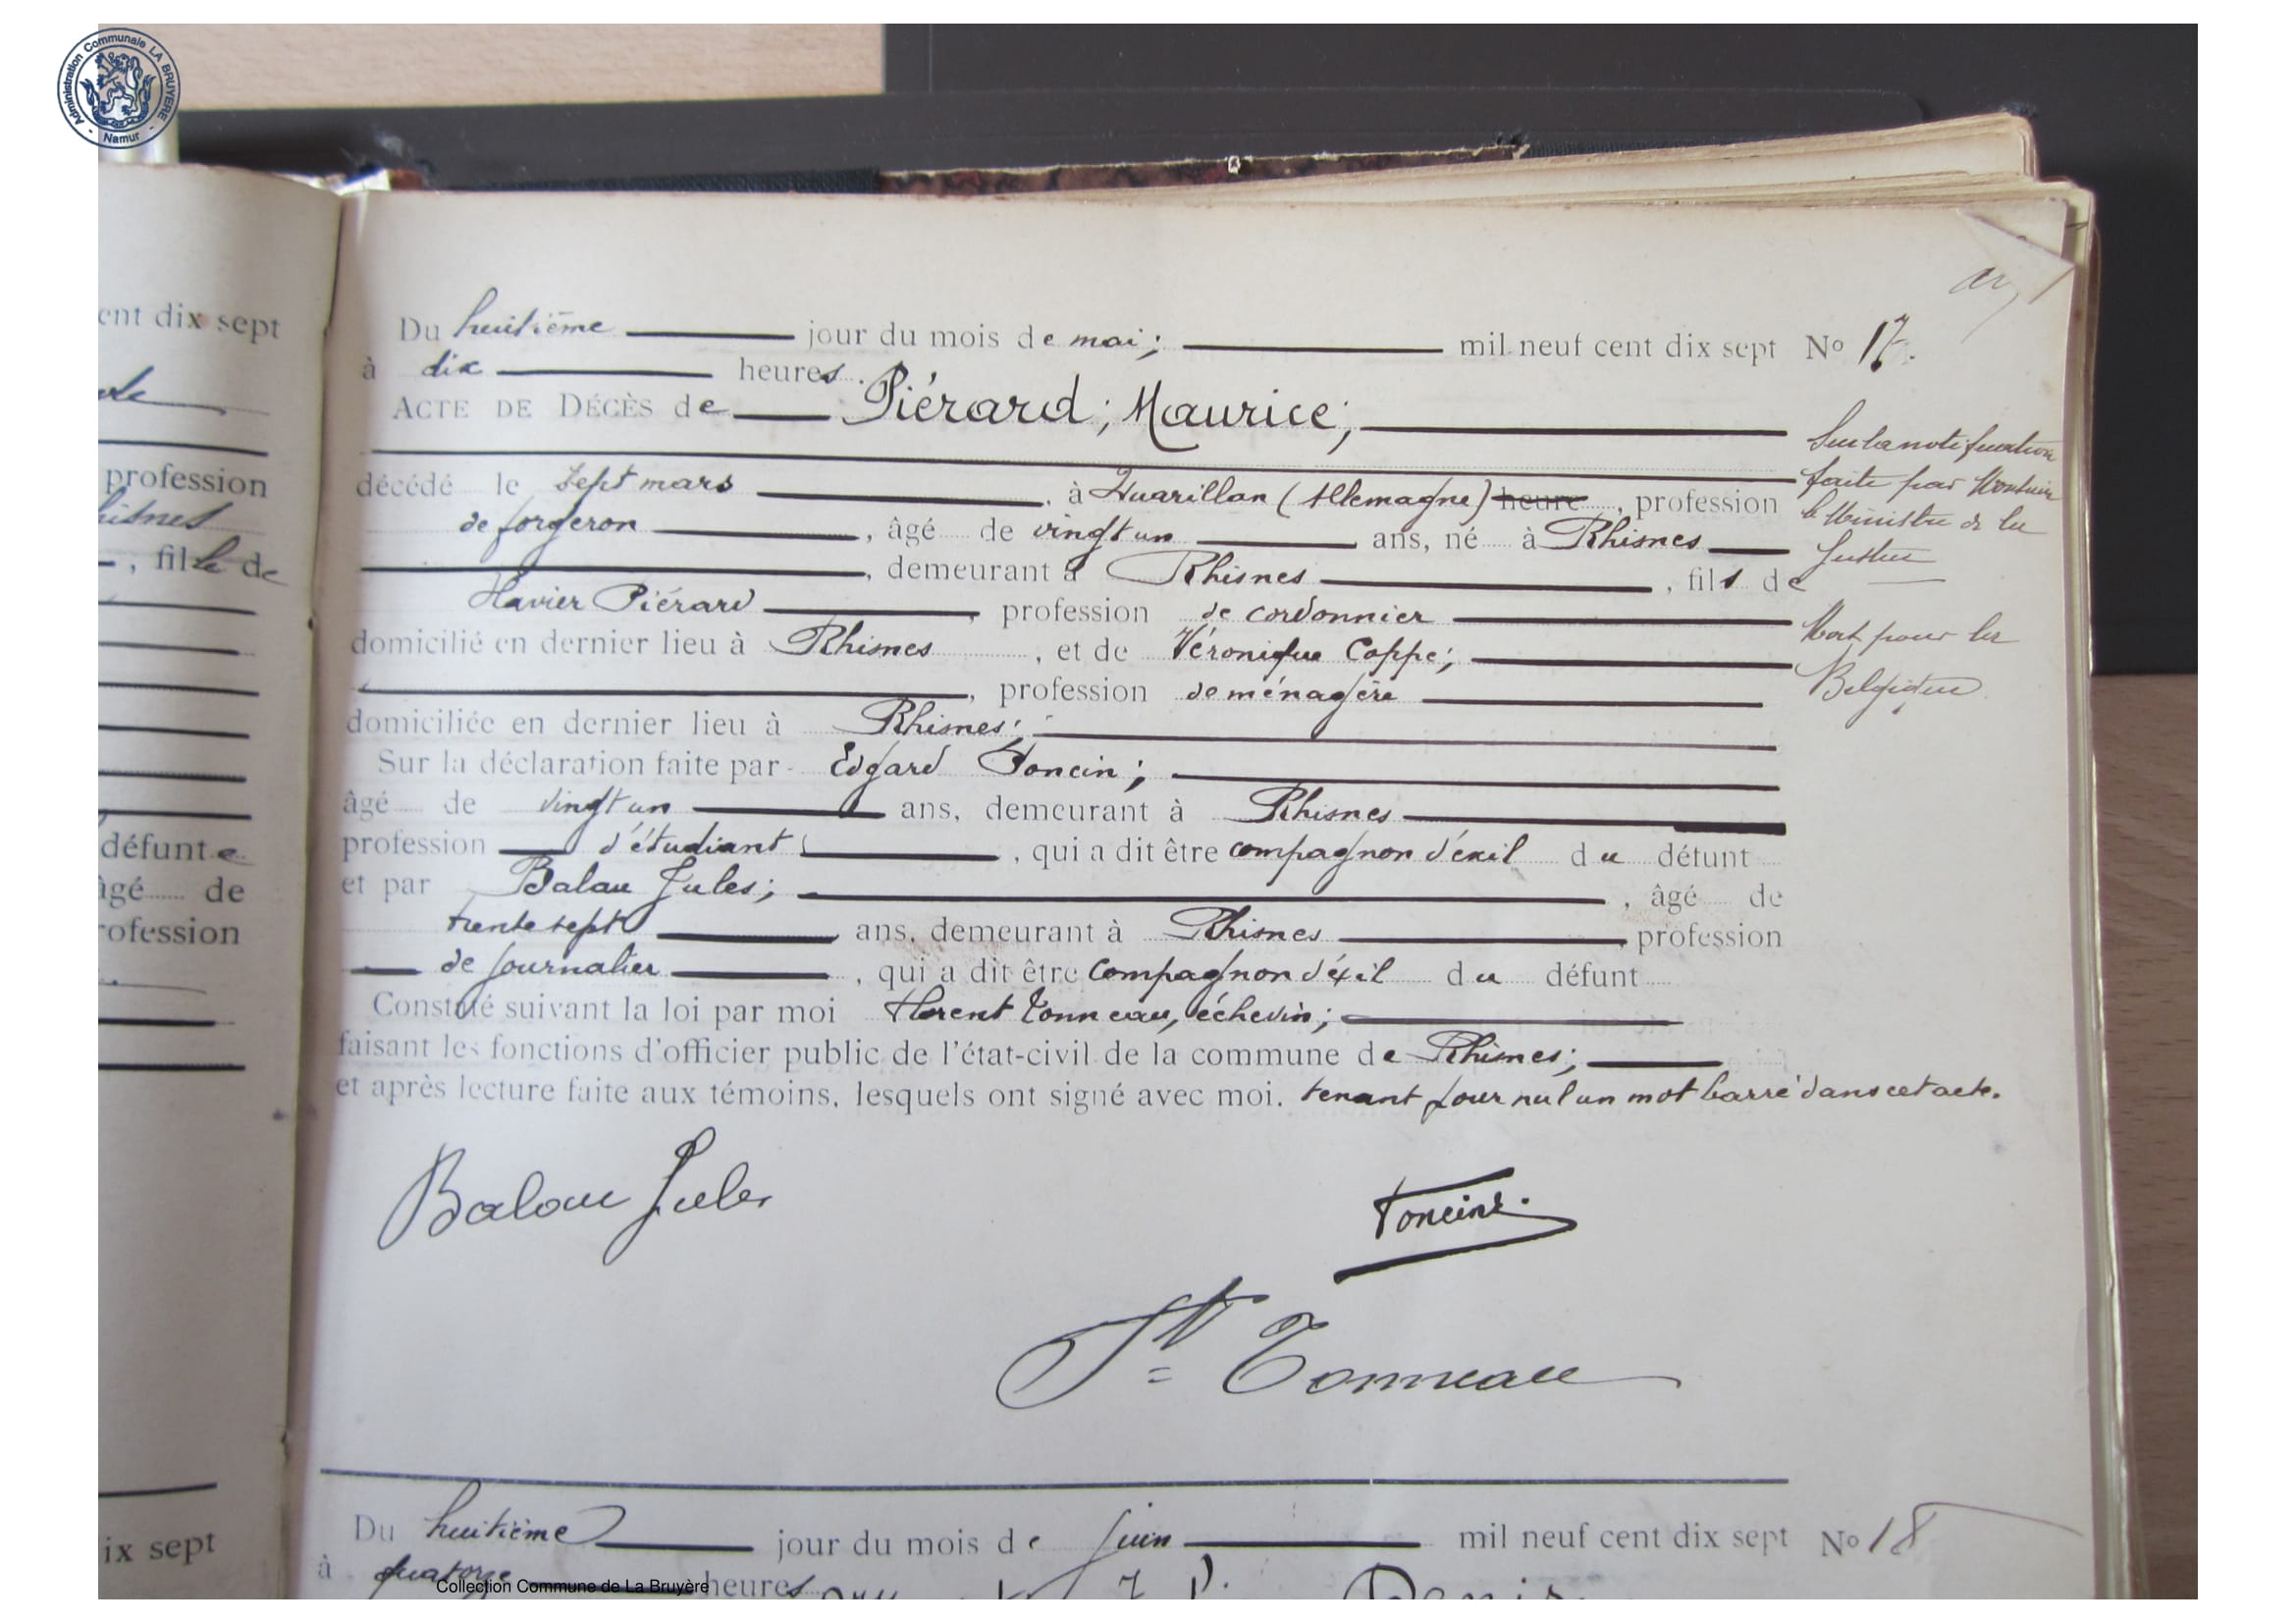 Administration Communale LA BRUYERE
- Namur -
ent dix sept
profession
, fille de
défunte
âgé de
rofession
ix sept
Du huitième jour du mois de mai; mil neuf cent dix sept No 17.
à dix heures.
ACTE DE DÉCÈS de Piérard; Maurice;
décédé le sept mars, à Quarillan (Allemagne) heure, profession
de forgeron, âgé de vingt un ans, né à Rhisnes
, demeurant à Rhisnes, fils de
Xavier Piérard, profession de cordonnier
domicilié en dernier lieu à Rhisnes, et de Véronique Coppe;
, profession de ménagère
domiciliée en dernier lieu à Rhisnes;
Sur la déclaration faite par Edgard Toncin;
âgé de vingt un ans, demeurant à Rhisnes
profession d'étudiant, qui a dit être compagnon d'exil du défunt
et par Balau Jules; , âgé de
trente sept ans, demeurant à Rhisnes, profession
de journalier, qui a dit être compagnon d'éxil du défunt
Constaté suivant la loi par moi Florent Tonneau, échevin;
faisant les fonctions d'officier public de l'état-civil de la commune de Rhisnes;
et après lecture faite aux témoins, lesquels ont signé avec moi. tenant pour nul un mot barré dans cet acte.
Sur la notification
faite par Monsieur
le Ministre de la
Justice
Mort pour la
Belgique
Balau Jules
Toncin
Ft Tonneau
Du huitième jour du mois de juin mil neuf cent dix sept No 18
à quatorze heures
Collection Commune de La Bruyère